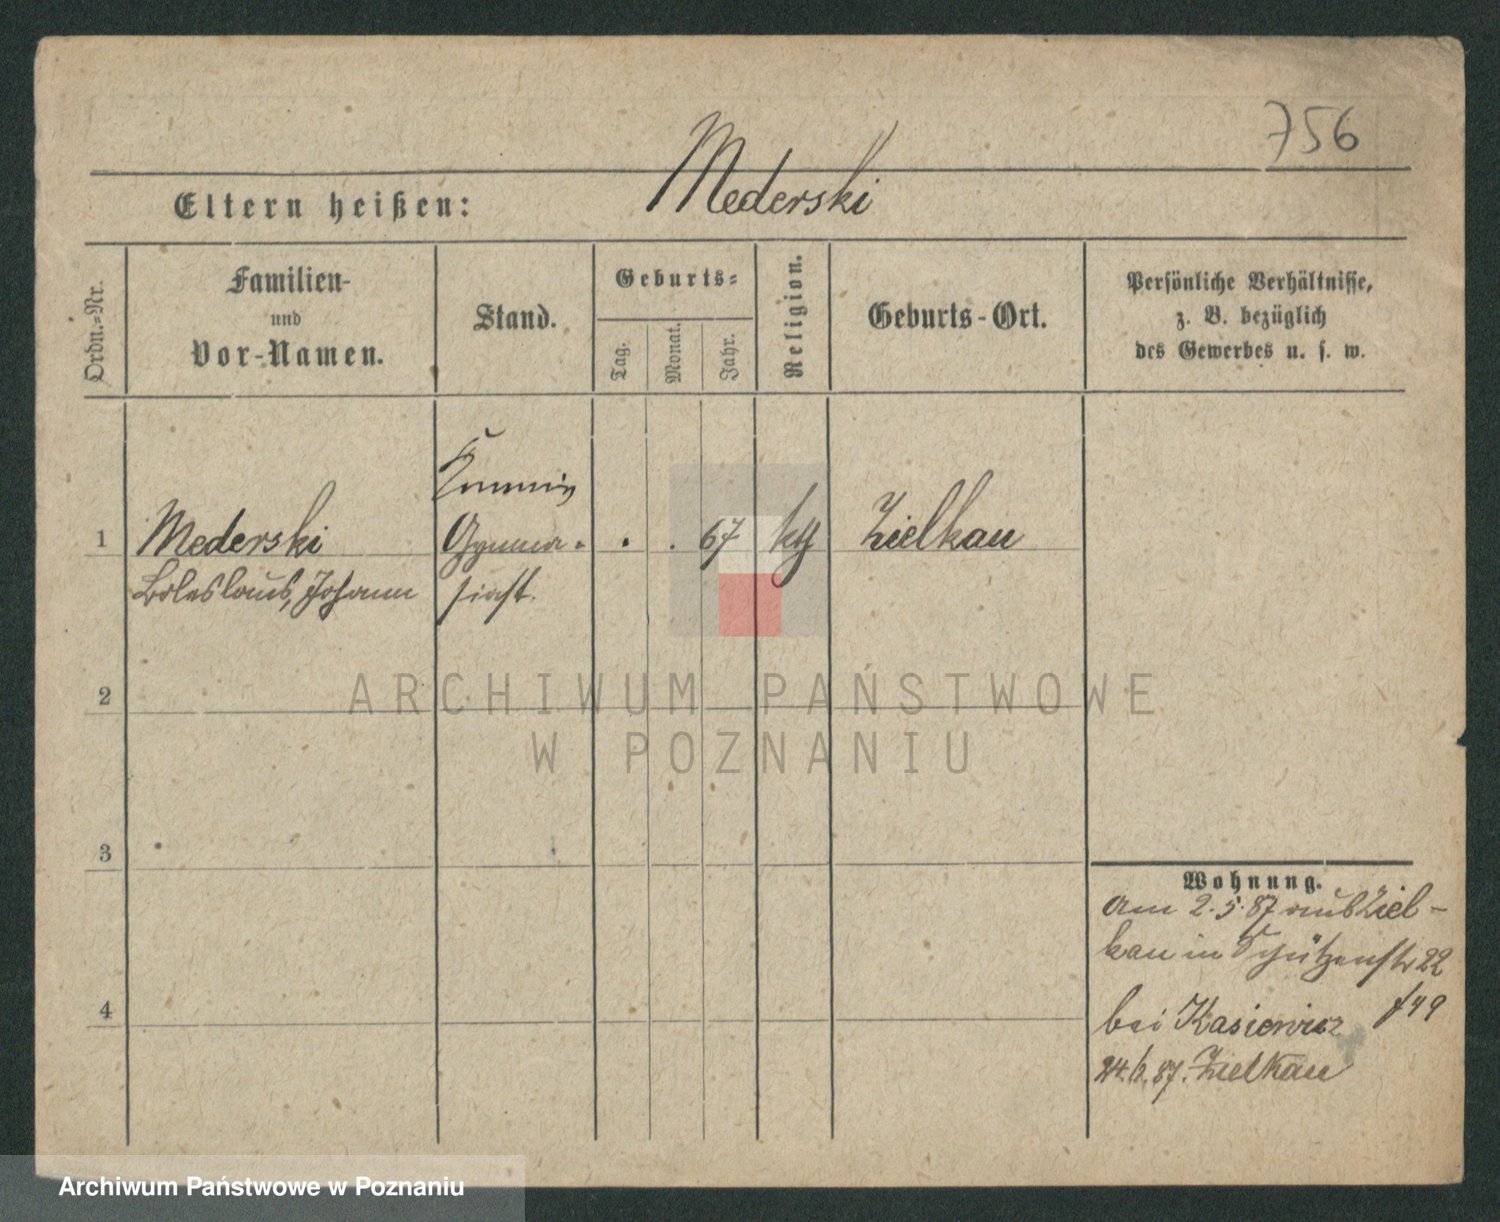 756
Eltern heißen: Mederski
Ordn.-Nr.
Familien-
und
Vor-Namen.
Stand.
Geburts-
Tag.
Monat.
Jahr.
Religion.
Geburts-Ort.
Persönliche Verhältnisse,
z. B. bezüglich
des Gewerbes u. s. w.
1
Mederski
Boleslaus, Johann
Gymna-
siast.
. . 67
Zielkau
2
3
4
ARCHIWUM PAŃSTWOWE
W POZNANIU
Wohnung.
Am 2.5.87 aus Ziel-
kau in Schützenstr 22
bei Kasiewicz
87. Zielkau
Archiwum Państwowe w Poznaniu